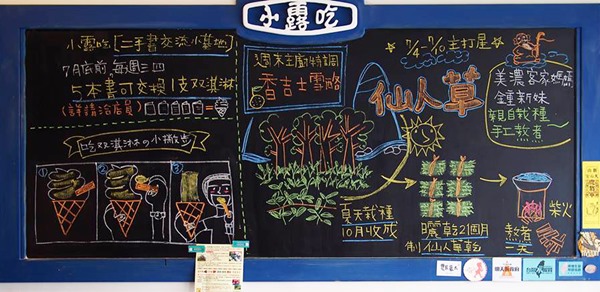 小露吃
小露吃[二手書交流小基地]
7月底前,每週三四
5本書可交換1支双淇淋
(詳精洽店員) =
吃双淇淋の小撇步
① ② ③
週末主廚特調
香吉士雪酪
7/4-7/10主打星
仙人草
美濃客家媽媽
鍾新妹
親自栽種
手工熬煮
夏天栽種
10月收成
曬乾2個月
制仙人草乾
柴火
熬煮
一天